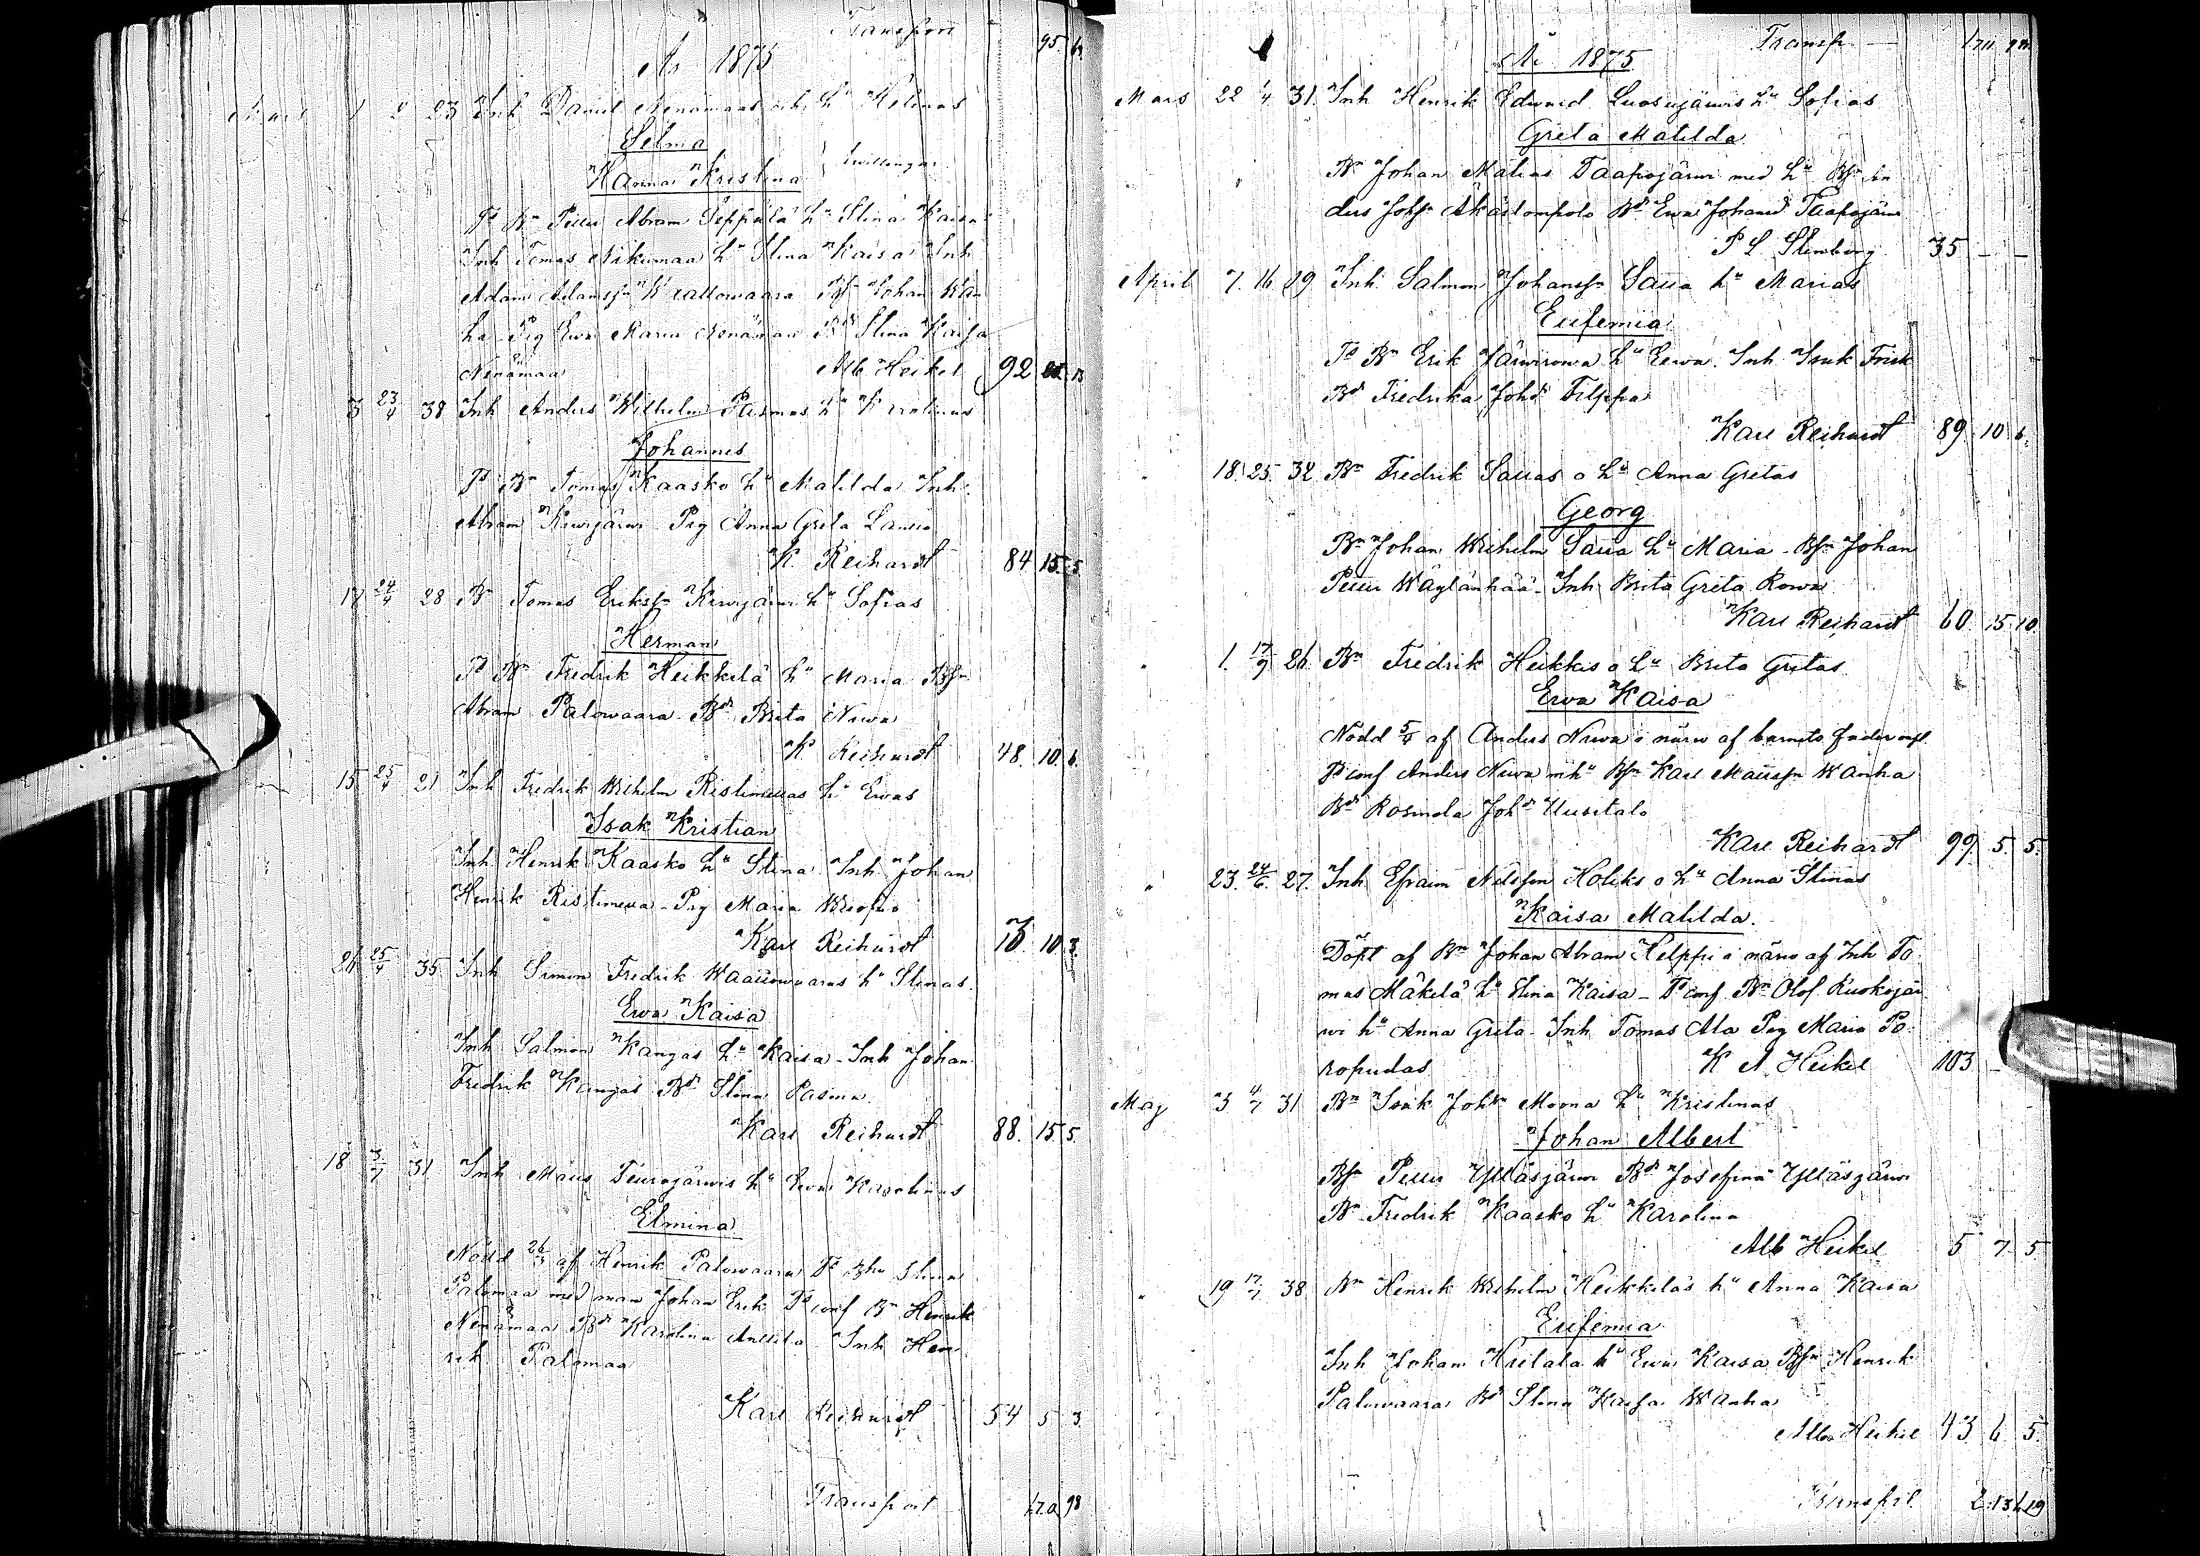 Transport 95
År 1875
Mars 1 23 Inh Daniel Nenämaas och hu Helenas
Selma
Hanna Kristina } tvillingar
Td Bn Petter Abram Seppälä hu Stina Kaisa
Inh Tomas Näkumaa hu Stina Kaisa Inh
Adam Adamssn Krattowaara Bsn Johan Wan
ha Pig Ewa Maria Nenämaa Bdr Stina Kajsa
Nenämaa Alb Heikel 92
3 23/4 38 Inh Anders Wilhelm Pasmas hu Karolinas
Johannes
Td Bn Tomas Kaasko hu Matilda Inh
Abram Kurjärwi Pig Anna Greta Lanso
K. Reihardt 84 15 5
17 24/4 28 B Tomas Erikssn Kurjärwi hu Sofias
Herman
Td Bn Fredrik Heikkilä hu Maria Bsn
Abram Palowaara Bdr Brita Niwa
K Reihardt 48. 10. 6
15 25/4 21 Inh Fredrik Wilhelm Ristimellas hu Ewas
Isak Kristian
Inh Henrik Kaasko hu Stina Inh Johan
Henrik Ristimella - Pig Maria
Karl Reihardt 10 3
26 25/4 35 Inh Simon Fredrik Waaliowaaras hu Stinas
Ewa Kaisa
Inh Salmon Kangas hu Kaisa - Inh Johan
Fredrik Kangas Bdr Stina Pasma
Karl Reihardt 88. 15 5
18 3/7 31 Inh Mats Teurajärwis hu Ewa Karolinas
Elmina
Nödd 26/3 af Henrik Palowaara Td Bhu Stina
Palomaa med man Johan Erik Td conf Bn Henrik
Nenämaa Bdr Karolina Anttila Inh Hen
rik Palomaa
Karl Reihardt 54 5 3
Transport 98
År 1875 Transp
Mars 22 1/4 31. Inh Henrik Edward Luosujärwis hu Sofias
Greta Matilda
Bn Johan Matias Taapojärwi med hu Bsn An
ders Johssn Äkäslompolo Bdr Ewa Johansd Taapojärwi
P L Stenborg 35 - -
April 7. 16 29 Inh. Salmon Johanssn Saua hu Marias
Eufemia
Td Bn Erik Järwirowa hu Eewa. Inh Isak Frisk
Bd Fredrika Johdr Filppa
Karl Reihardt 89. 10 6.
" 18. 25. 32 Bn Fredrik Sauas o hu Anna Gretas
Georg
Bn Johan Wilhelm Saua hu Maria - Bsn Johan
Petter Wäylänpää - Inh Brita Greta Rowa
Karl Reihardt 60 15 10
" 1. 17/7 26 Bn Fredrik Heikkis o hu Brita Gretas
Ewa Kaisa
Nödd 5/4 af Anders Niwa i närw af barnets fader
Td conf Anders Niwa m hu Bsn Karl Matssn Wanha
Bdr Rosinda Johdr Uusitalo
Karl Reihardt 99. 5. 5.
" 23. 24/6. 27. Inh Efraim Nilssson Holiks o hu Anna Stinas
Kaisa Matilda.
Döpt af Bn Johan Abram Kelppi i närw af Inh To
mas Mäkelä hu Stina Kaisa - Td conf Bn Olof Ruokojär
wi hu Anna Greta - Inh Tomas Ala Pig Maria Po
ropudas K A Heikel 103 -
Maj 3 4/7 31 Bn Isak Johssn Moona hu Kristinas
Johan Albert
Bsn Petter Ylläsjärwi Bdr Josefina Ylläsjärwi
Bn Fredrik Kaasko hu Karolina
Alb Heikel 5 7 5
" 19 17/7 38 Bn Henrik Wilhelm Heikkiläs hu Anna Kaisa
Eufemia
Inh Johan Hietala hu Ewa Kaisa Bsn Henrik
Palowaara Bdr Stina Kajsa Wanha
Alb Heikel 43 6 5.
Transport